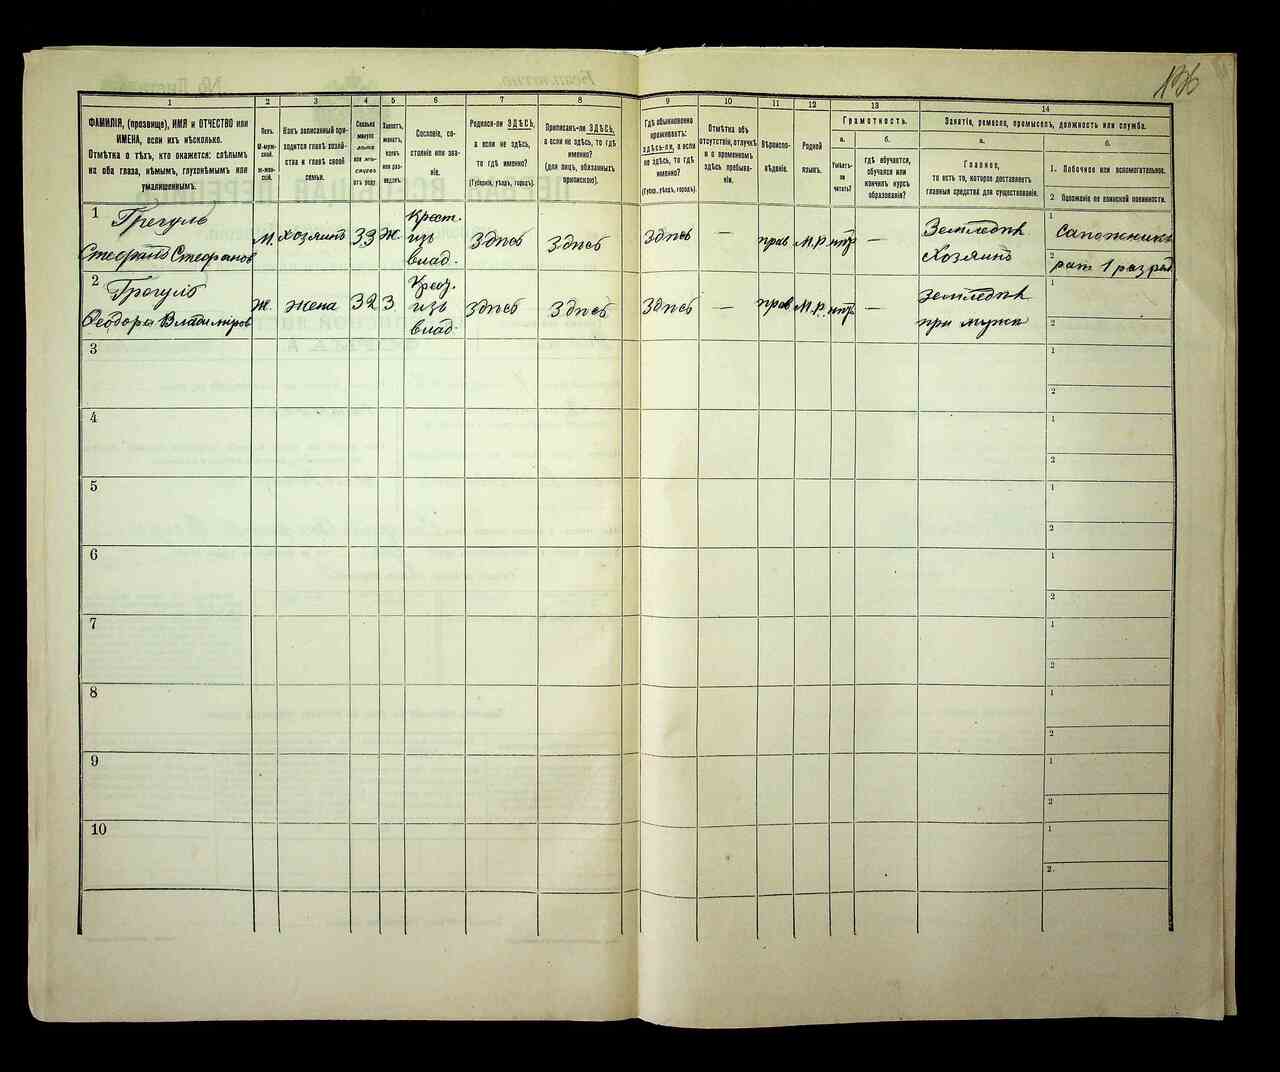 136
1
2
3
4
5
6
7
8
9
10
11
12
13
14
ФАМИЛІЯ, (прозвище), ИМЯ и ОТЧЕСТВО или
ИМЕНА, если ихъ нѣсколько.
Отмѣтка о тѣхъ, кто окажется: слѣпымъ
на оба глаза, нѣмымъ, глухонѣмымъ или
умалишеннымъ.
Полъ.
М-муж-
ской.
Ж-жен-
скій.
Какъ записанный при-
ходится главѣ хозяй-
ства и главѣ своей
семьи.
Сколько
минуло
лѣтъ
или мѣ-
сяцевъ
отъ роду.
Холостъ,
женатъ,
вдовъ
или раз-
веденъ.
Сословіе, со-
стояніе или зва-
ніе.
Родился-ли ЗДѢСЬ,
а если не здѣсь,
то гдѣ именно?
(Губернія, уѣздъ, городъ).
Приписанъ-ли ЗДѢСЬ,
а если не здѣсь, то гдѣ
именно?
(для лицъ, обязанныхъ
припискою).
Гдѣ обыкновенно
проживаетъ:
здѣсь-ли, а если
не здѣсь, то гдѣ
именно?
(Губерн., уѣздъ, городъ).
Отмѣтка объ
отсутствіи, отлучкѣ
и о временномъ
здѣсь пребыва-
ніи.
Вѣроиспо-
вѣданіе.
Родной
языкъ.
Грамотность.
а.
Умѣетъ-
ли
читать?
б.
гдѣ обучается,
обучался или
кончилъ курсъ
образованія?
Занятіе, ремесло, промыселъ, должность или служба.
а.
Главное,
то есть то, которое доставляетъ
главныя средства для существованія.
б.
1. Побочное или вспомогательное.
2 Положеніе по воинской повинности.
1 Грегуль
Стефанъ Стефановъ
М.
хозяинъ
33
Ж.
Крест.
изъ
влад.
Здѣсь
Здѣсь
Здѣсь
—
прав
М.Р.
нѣтъ
—
Земледѣл
Хозяинъ
1 сапожникъ
2 рат 1 разряд
2 Грегуль
Ѳеодора Владиміров
Ж.
жена
32
З.
Крест.
изъ
влад.
Здѣсь
Здѣсь
Здѣсь
—
прав
М.Р.
нѣтъ
—
Земледѣл
при мужѣ
1
2
3
1
2
4
1
2
5
1
2
6
1
2
7
1
2
8
1
2
9
1
2
10
1
2.